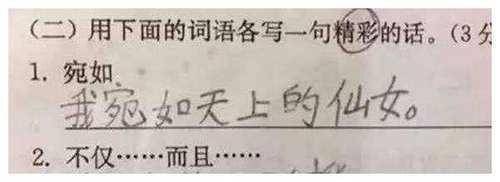 （二）用下面的词语各写一句精彩的话。（3分
1. 宛如
我宛如天上的仙女。
2. 不仅……而且……